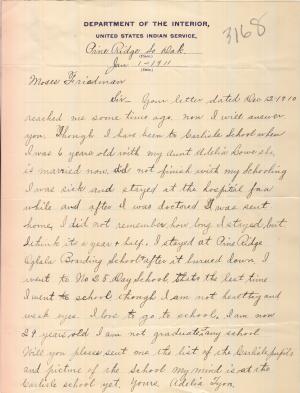 DEPARTMENT OF THE INTERIOR,
UNITED STATES INDIAN SERVICE,
3168
Pine Ridge So Dak.
(Place)
Jan 1-1911
(Date)
Moses Friedman
Sir- Your letter dated Dec 12 1910
reached me some time ago. now I will answer
you. Though I have been to Carlisle School when
I was 6 years old with my aunt Adelia Lowe she
is married now. I did not finish with my schooling
I was sick and stayed at the hospital for a
while and after I was doctored I was sent
home, I did not remember how long I stayed, but
I think its a year & half. I stayed at Pine Ridge
Oglala Boarding School after it burned down I
went to No 25 Day School thats the last time
I went to school though I am not healthy and
weak eyes. I love to go to school. I am now
29 years old I am not graduate any school
Will you please sent me the list of the Carlisle pupils
and picture of the School my mind is at the
Carlisle school yet. Yours Adelia Tyon